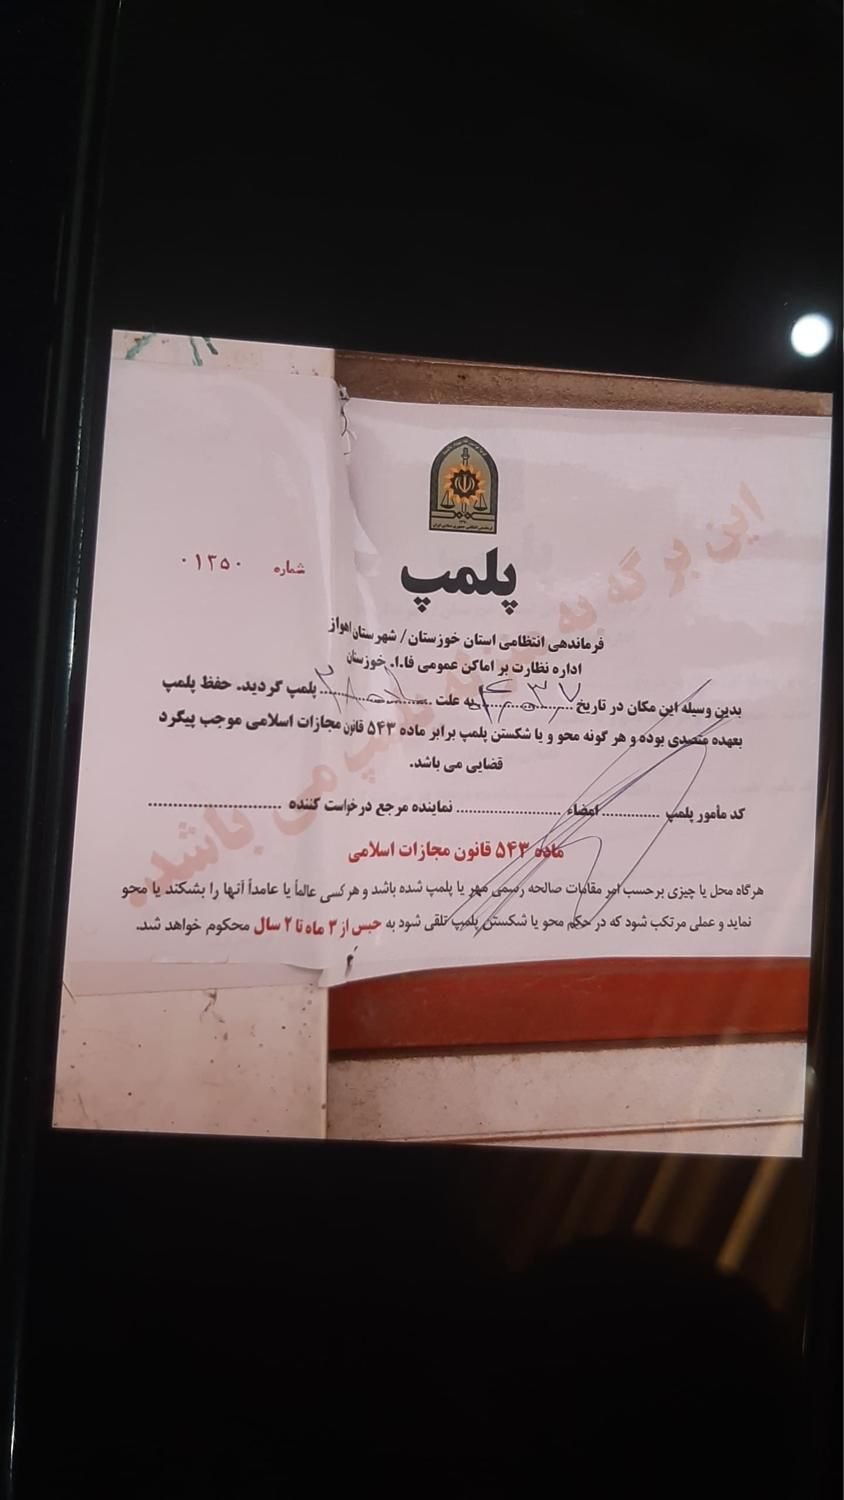 این برگه به منزله پلمپ می باشد.
شماره ۰۱۳۵۰
پلمپ
فرماندهی انتظامی استان خوزستان/ شهرستان اهواز
اداره نظارت بر اماکن عمومی فا.ا. خوزستان
بدین وسیله این مکان در تاریخ .................... به علت .................... پلمپ گردید. حفظ پلمپ
بعهده متصدی بوده و هر گونه محو و یا شکستن پلمپ برابر ماده ۵۴۳ قانون مجازات اسلامی موجب پیگرد
قضایی می باشد.
کد مأمور پلمپ .............. امضاء .......................... نماینده مرجع درخواست کننده ................................
ماده ۵۴۳ قانون مجازات اسلامی
هرگاه محل یا چیزی برحسب امر مقامات صالحه رسمی مهر یا پلمپ شده باشد و هر کسی عالماً یا عامداً آنها را بشکند یا محو
نماید و عملی مرتکب شود که در حکم محو یا شکستن پلمپ تلقی شود به حبس از ۳ ماه تا ۲ سال محکوم خواهد شد.